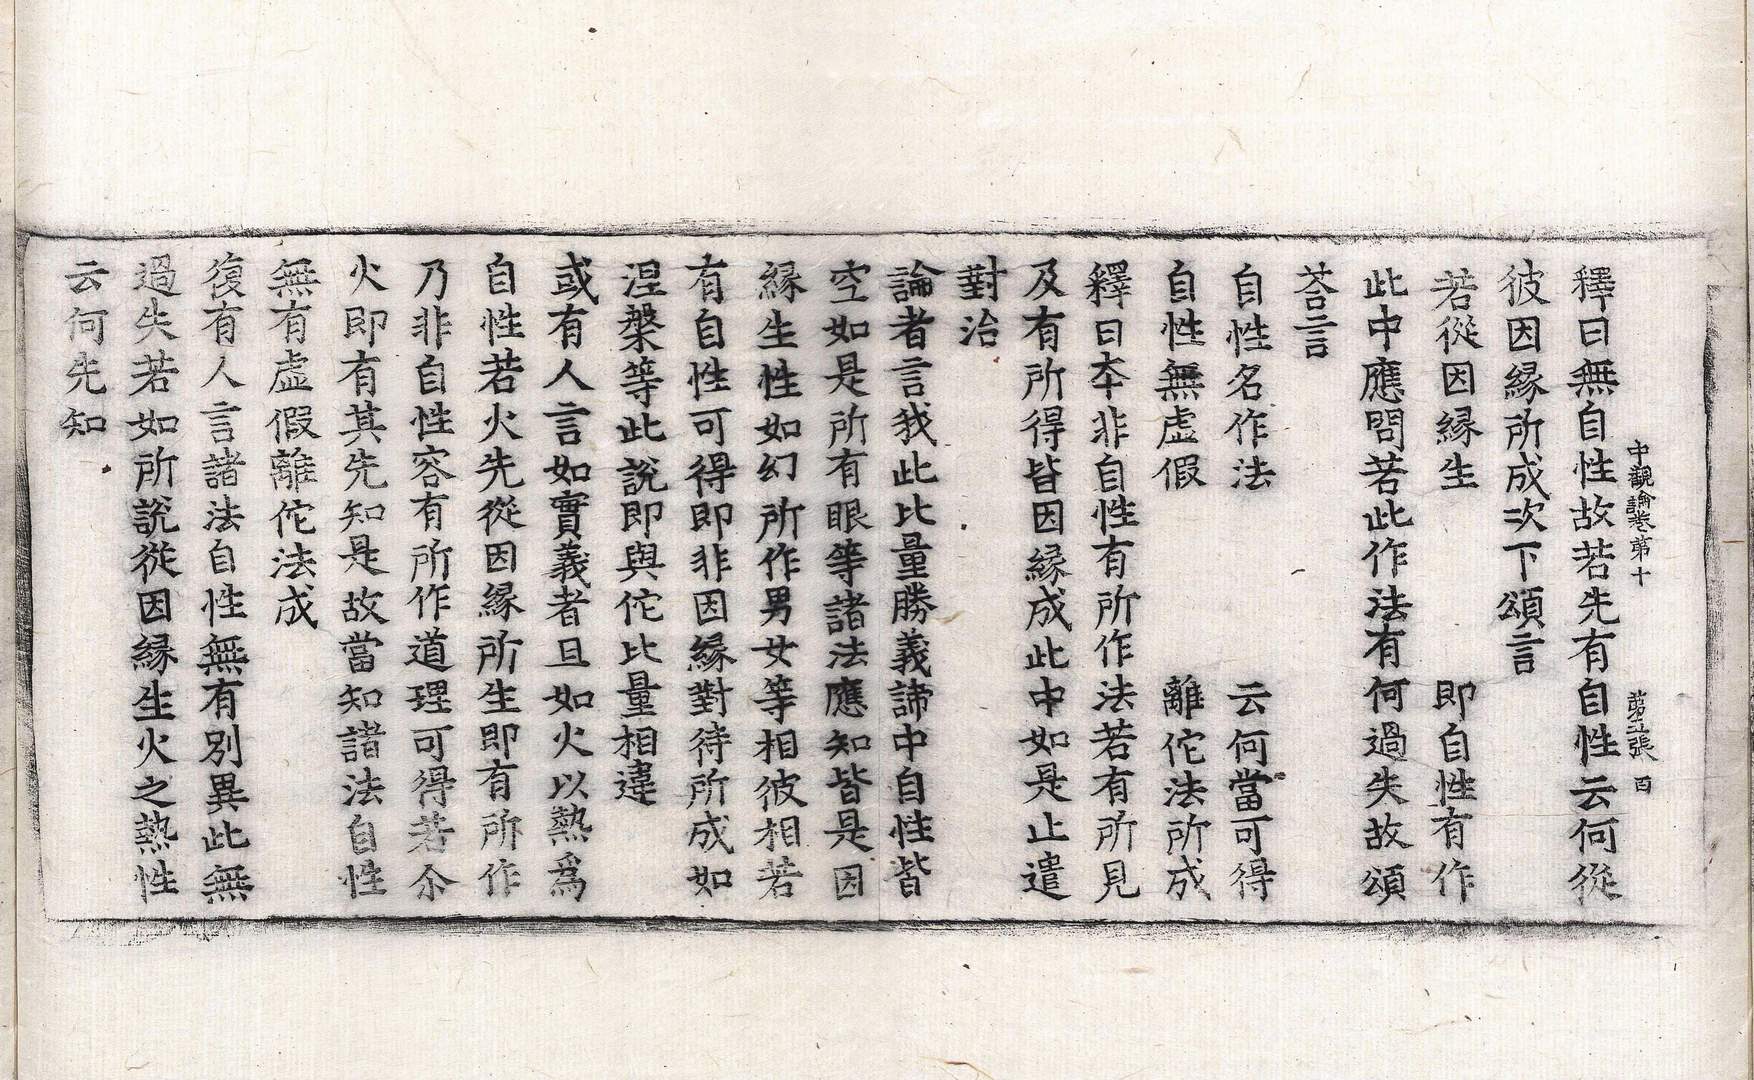 中觀論卷第十　第五張　百
釋曰無自性故若先有自性云何從
彼因緣所成次下頌言
若從因緣生　即自性有作
此中應問若此作法有何過失故頌
荅言
自性名作法　云何當可得
自性無虛假　離佗法所成
釋曰本非自性有所作法若有所見
及有所得皆因緣成此中如是止遣
對治
論者言我此比量勝義諦中自性皆
空如是所有眼等諸法應知皆是因
緣生性如幻所作男女等相彼相若
有自性可得即非因緣對待所成如
涅槃等此說即與佗比量相違
或有人言如實義者且如火以熱爲
自性若火先從因緣所生即有所作
乃非自性容有所作道理可得若尒
火即有其先知是故當知諸法自性
無有虛假離佗法成
復有人言諸法自性無有別異此無
過失若如所說從因緣生火之熱性
云何先知